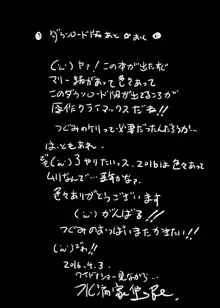 ダウンロード版あとがおく
(・ω・) ヤァ! この本が出たすぐ
マリー話があって色々あって
このダウンロード版が出てるころが
原作クライマックスだね!!
つぐみのケリって必要だったんだろうか…
は、ともあれ
(・ω・) 3 やりたいッス。2016は色々あって
ムリなんで…
色々ありがとうございます
(・ω・) がんばる!!
つぐみのよっぱいまたかきたい!!
(・ω・) でわ!!
2016.4.3.
ワイドナショー見ながら…